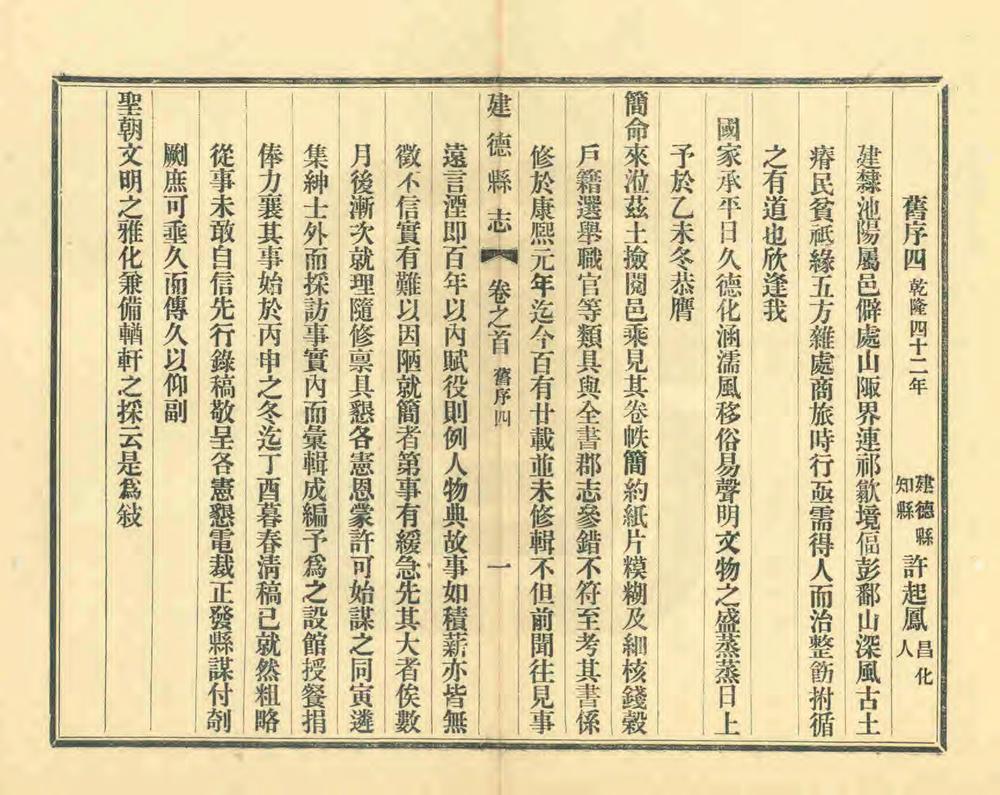 舊序四 乾隆四十二年 建德縣知縣 許起鳳 昌化人
建隸池陽屬邑僻處山陬界連祁歙境偪彭鄱山深風古土
瘠民貧祇緣五方雜處商旅時行亟需得人而治整飭拊循
之有道也欣逢我
國家承平日久德化涵濡風移俗易聲明文物之盛蒸蒸日上
予於乙未冬恭膺
簡命來涖茲土撿閱邑乘見其卷帙簡約紙片糢糊及細核錢穀
戶籍選舉職官等類具與全書郡志參錯不符至考其書係
修於康熙元年迄今百有廿載並未修輯不但前聞往見事
建德縣志 卷之首 舊序四 一
遠言湮即百年以內賦役則例人物典故事如積薪亦皆無
徵不信實有難以因陋就簡者第事有緩急先其大者俟數
月後漸次就理隨修禀具懇各憲恩蒙許可始謀之同寅遴
集紳士外而採訪事實內而彙輯成編予爲之設館授餐捐
俸力襄其事始於丙申之冬迄丁酉暮春清稿已就然粗略
從事未敢自信先行錄稿敬呈各憲懇電裁正發縣謀付剞
劂庶可垂久而傳久以仰副
聖朝文明之雅化兼備輶軒之採云是爲敍